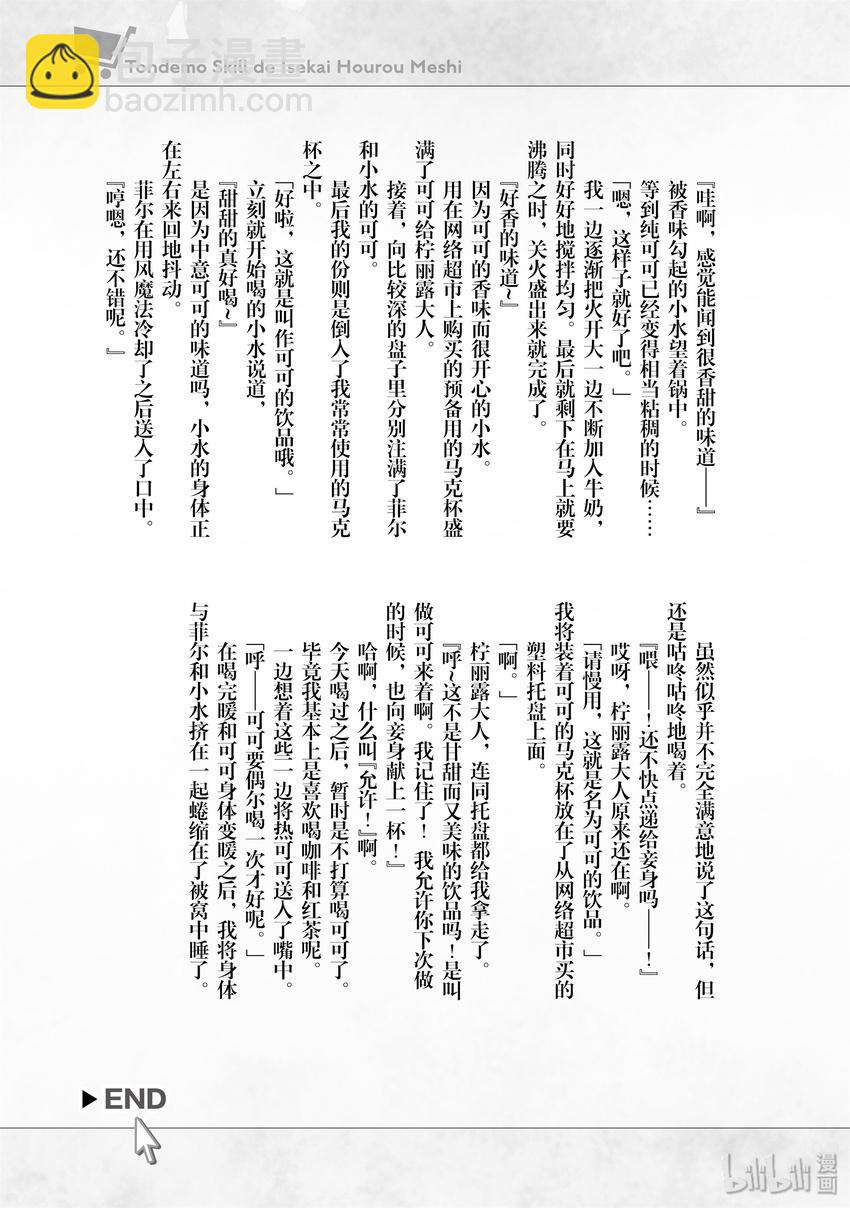 包子漫畫
baozimh.com
Tondemo Skill de Isekai Hourou Meshi
『哇啊，感觉能闻到很香甜的味道——』
被香味勾起的小水望着锅中。
等到纯可可已经变得相当粘稠的时候……
「嗯，这样子就好了吧。」
我一边逐渐把火开大一边不断加入牛奶，
同时好好地搅拌均匀。最后就剩下在马上就要
沸腾之时，关火盛出来就完成了。
『好香的味道~』
因为可可的香味而很开心的小水。
用在网络超市上购买的预备用的马克杯盛
满了可可给柠丽露大人。
接着，向比较深的盘子里分别注满了菲尔
和小水的可可。
最后我的份则是倒入了我常常使用的马克
杯之中。
「好啦，这就是叫作可可的饮品哦。」
立刻就开始喝的小水说道，
『甜甜的真好喝~』
是因为中意可可的味道吗，小水的身体正
在左右来回地抖动。
菲尔在用风魔法冷却了之后送入了口中。
『哼嗯，还不错呢。』
虽然似乎并不完全满意地说了这句话，但
还是咕咚咕咚地喝着。
『喂——！还不快点递给妾身吗——！』
哎呀，柠丽露大人原来还在啊。
「请慢用，这就是名为可可的饮品。」
我将装着可可的马克杯放在了从网络超市买的
塑料托盘上面。
「啊。」
柠丽露大人，连同托盘都给我拿走了。
『呼~这不是甘甜而又美味的饮品吗！是叫
做可可来着啊。我记住了！我允许你下次做
的时候，也向妾身献上一杯！』
哈啊，什么叫『允许！』啊。
今天喝过之后，暂时是不打算喝可可了。
毕竟我基本上是喜欢喝咖啡和红茶呢。
一边想着这些一边将热可可送入了嘴中。
「呼——可可要偶尔喝一次才好呢。」
在喝完暖和可可身体变暖之后，我将身体
与菲尔和小水挤在一起蜷缩在了被窝中睡了。
▶END
bilibili漫画